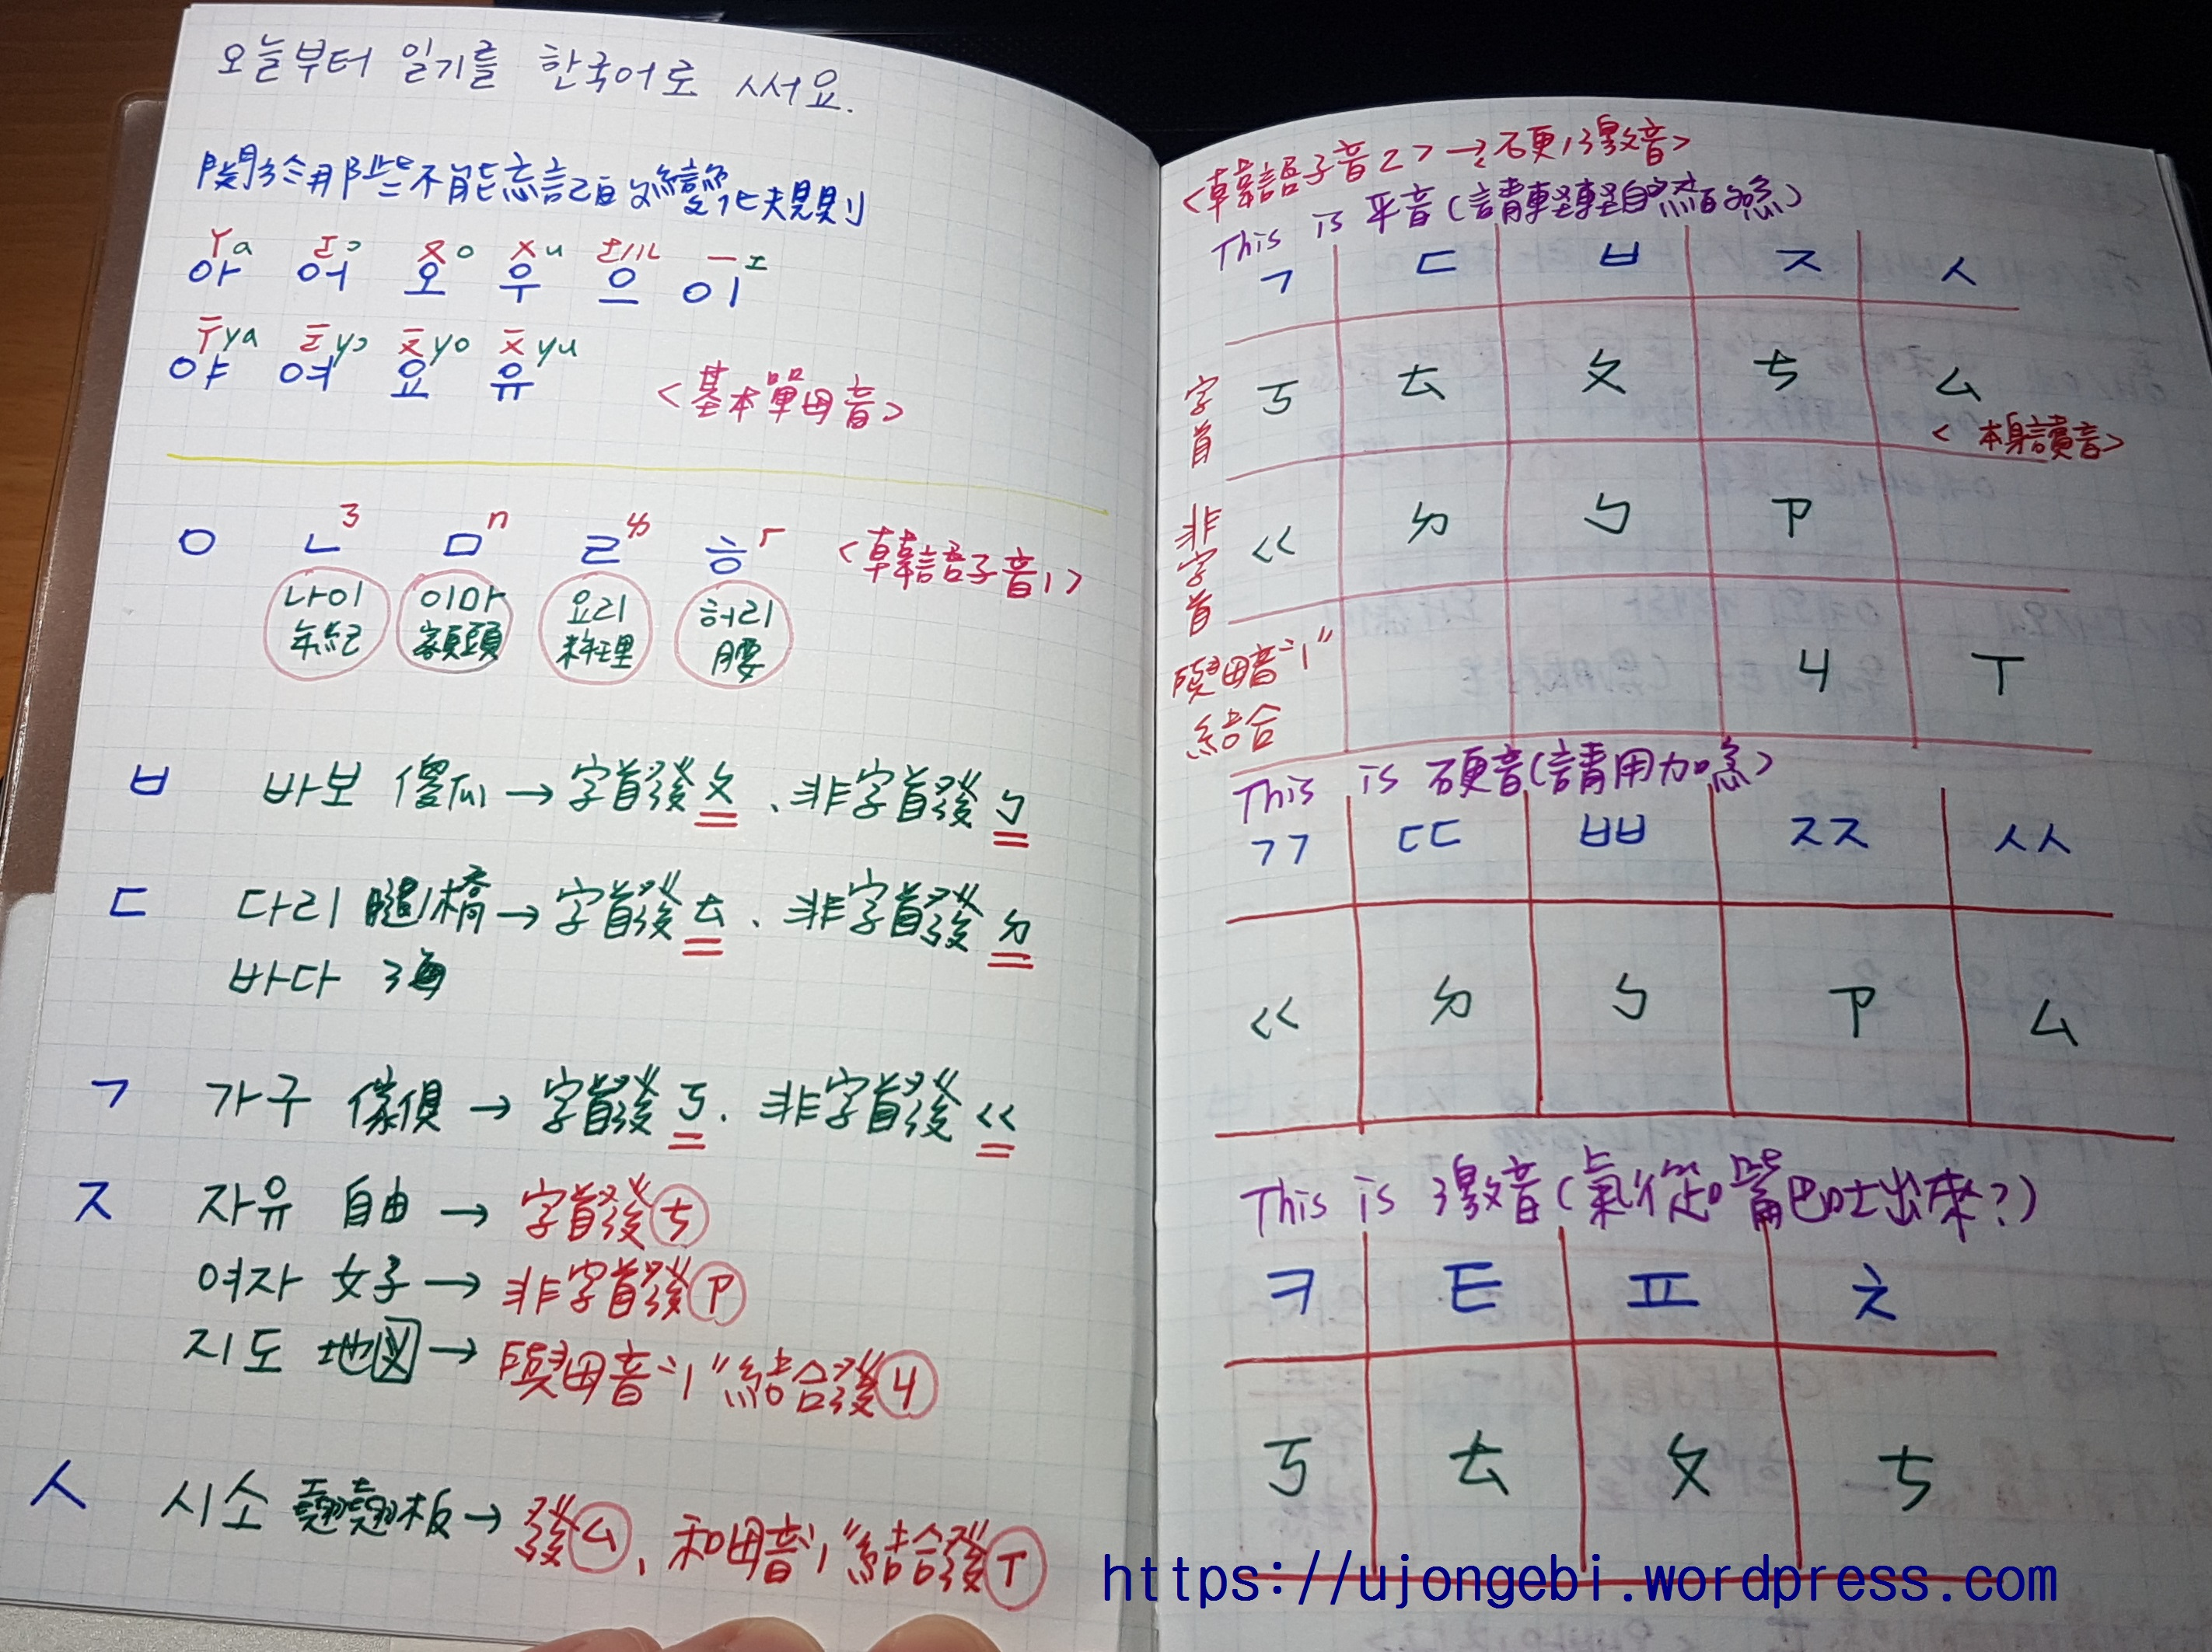 오늘부터 일기를 한국어로 써요.
關於那些不能忘記的變化規則
ㄚa ㄛɔ ㄡo ㄨu ㄜ/ㄦ ㄧ工
아 어 오 우 으 이
ㄧㄚya ㄧㄛyɔ ㄧㄡyo ㄧㄨyu
야 여 요 유 <基本單母音>
ㅇ ㄴㄋ ㅁㄇ ㄹㄌ ㅎㄏ <韓語子音1>
나이 이마 요리 허리
年紀 額頭 料理 腰
ㅂ 바보 傻瓜→字首發ㄆ、非字首發ㄅ
ㄷ 다리 腿/橋→字首發ㄊ、非字首發ㄉ
바다 海
ㄱ 가구 傢俱→字首發ㄎ、非字首發ㄍ
ㅈ 자유 自由→字首發ㄘ
여자 女子→非字首發ㄗ
지도 地図→與母音"ㅣ"結合發ㄐ
ㅅ 시소 翹翹板→發ㄙ、和母音"ㅣ"結合發ㄒ
<韓語子音2>→硬/激音>
This is 平音(請輕輕自然的唸)
ㄱ ㄷ ㅂ ㅈ ㅅ
字首 ㄎ ㄊ ㄆ ㄘ ㄙ
<本身讀音>
非字首 ㄍ ㄉ ㄅ ㄗ
與母音"ㅣ"結合 ㄐ ㄒ
This is 硬音(請用力唸)
ㄲ ㄸ ㅃ ㅉ ㅆ
ㄍ ㄉ ㄅ ㄗ ㄙ
This is 激音(氣從嘴巴吐出來?)
ㅋ ㅌ ㅍ ㅊ
ㄎ ㄊ ㄆ ㄘ
https://ujongebi.wordpress.com